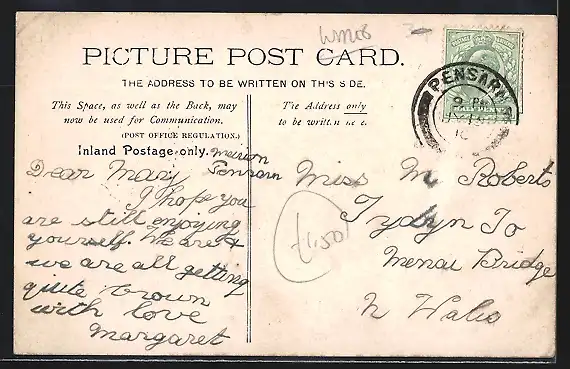 PICTURE POST CARD.
THE ADDRESS TO BE WRITTEN ON THIS SIDE.
This Space, as well as the Back, may
now be used for Communication.
(POST OFFICE REGULATION.)
Inland Postage only.
The Address only
to be written here.
Pensarn
Dear Mary
I hope you
are still enjoying
yourself. We are
we are all getting
quite brown
with love
Margaret
PENSARN
Miss M Roberts
Tydyn To
Menai Bridge
N Wales
£1.50